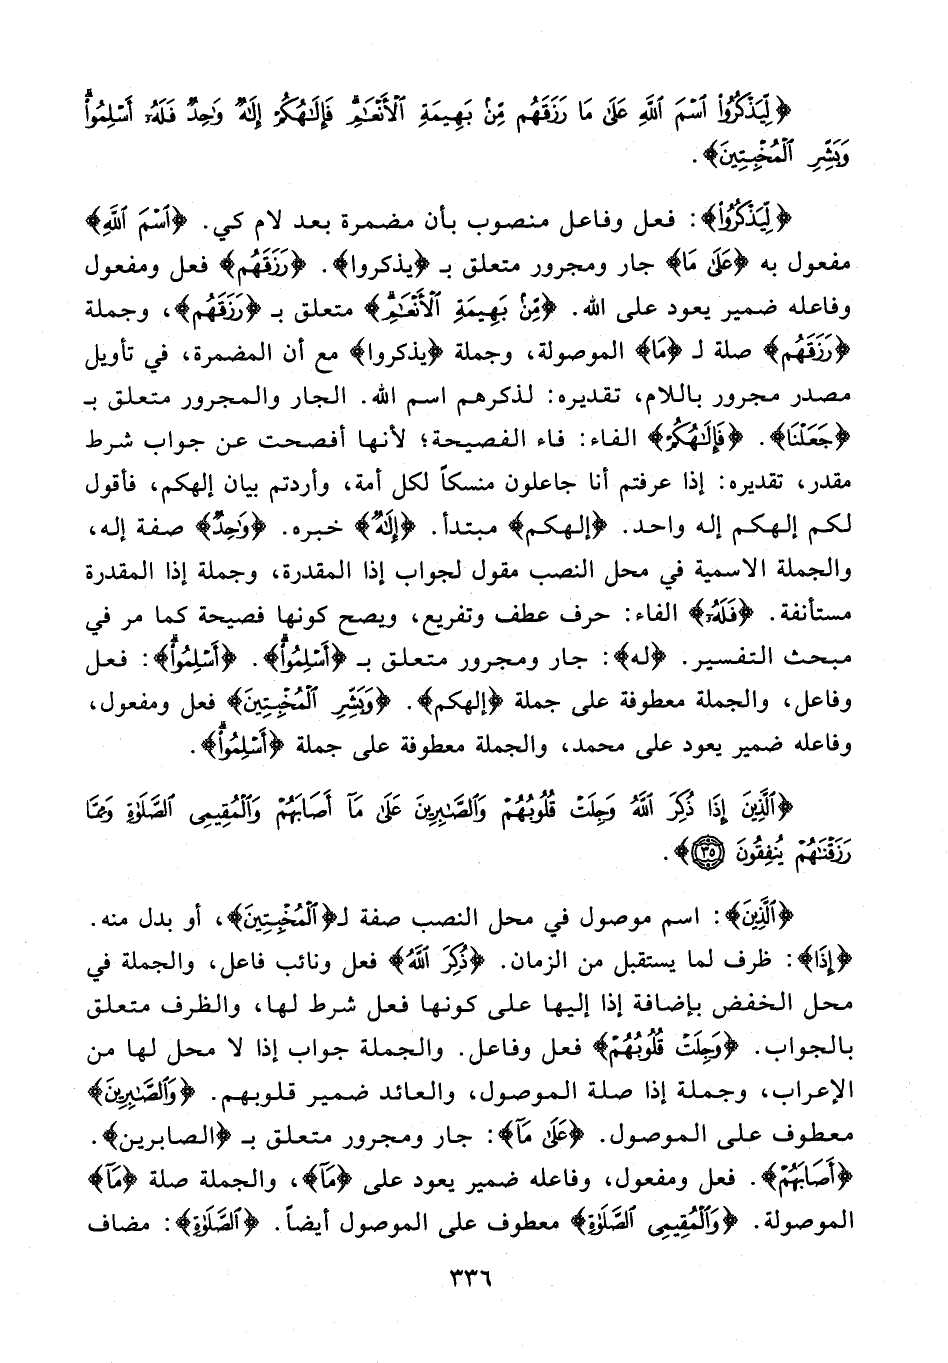 ﴿لِّيَذْكُرُوا۟ ٱسْمَ ٱللَّهِ عَلَىٰ مَا رَزَقَهُم مِّنۢ بَهِيمَةِ ٱلْأَنْعَـٰمِ ۗ فَإِلَـٰهُكُمْ إِلَـٰهٌ وَٰحِدٌ فَلَهُۥٓ أَسْلِمُوا۟ ۗ
وَبَشِّرِ ٱلْمُخْبِتِينَ﴾.
﴿لِّيَذْكُرُوا۟﴾: فعل وفاعل منصوب بأن مضمرة بعد لام كي. ﴿ٱسْمَ ٱللَّهِ﴾
مفعول به ﴿عَلَىٰ مَا﴾ جار ومجرور متعلق بـ ﴿يذكروا﴾. ﴿رَزَقَهُم﴾ فعل ومفعول
وفاعله ضمير يعود على الله. ﴿مِّنۢ بَهِيمَةِ ٱلْأَنْعَـٰمِ ۗ﴾ متعلق بـ ﴿رَزَقَهُم﴾، وجملة
﴿رَزَقَهُم﴾ صلة لـ ﴿مَا﴾ الموصولة، وجملة ﴿يذكروا﴾ مع أن المضمرة، في تأويل
مصدر مجرور باللام، تقديره: لذكرهم اسم الله. الجار والمجرور متعلق بـ
﴿جَعَلْنَا﴾. ﴿فَإِلَـٰهُكُمْ﴾ الفاء: فاء الفصيحة؛ لأنها أفصحت عن جواب شرط
مقدر، تقديره: إذا عرفتم أنا جاعلون منسكاً لكل أمة، وأردتم بيان إلهكم، فأقول
لكم إلهكم إله واحد. ﴿إلهكم﴾ مبتدأ. ﴿إِلَـٰهٌ﴾ خبره. ﴿وَٰحِدٌ﴾ صفة إله،
والجملة الاسمية في محل النصب مقول لجواب إذا المقدرة، وجملة إذا المقدرة
مستأنفة. ﴿فَلَهُۥٓ﴾ الفاء: حرف عطف وتفريع، ويصح كونها فصيحة كما مر في
مبحث التفسير. ﴿له﴾: جار ومجرور متعلق بـ ﴿أَسْلِمُوا۟ ۗ﴾. ﴿أَسْلِمُوا۟ ۗ﴾: فعل
وفاعل، والجملة معطوفة على جملة ﴿إلهكم﴾. ﴿وَبَشِّرِ ٱلْمُخْبِتِينَ﴾ فعل ومفعول،
وفاعله ضمير يعود على محمد، والجملة معطوفة على جملة ﴿أَسْلِمُوا۟ ۗ﴾.
﴿ٱلَّذِينَ إِذَا ذُكِرَ ٱللَّهُ وَجِلَتْ قُلُوبُهُمْ وَٱلصَّـٰبِرِينَ عَلَىٰ مَآ أَصَابَهُمْ وَٱلْمُقِيمِى ٱلصَّلَوٰةِ وَمِمَّا
رَزَقْنَـٰهُمْ يُنفِقُونَ ٣٥﴾.
﴿ٱلَّذِينَ﴾: اسم موصول في محل النصب صفة لـ﴿ٱلْمُخْبِتِينَ﴾، أو بدل منه.
﴿إِذَا﴾: ظرف لما يستقبل من الزمان. ﴿ذُكِرَ ٱللَّهُ﴾ فعل ونائب فاعل، والجملة في
محل الخفض بإضافة إذا إليها على كونها فعل شرط لها، والظرف متعلق
بالجواب. ﴿وَجِلَتْ قُلُوبُهُمْ﴾ فعل وفاعل. والجملة جواب إذا لا محل لها من
الإعراب، وجملة إذا صلة الموصول، والعائد ضمير قلوبهم. ﴿وَٱلصَّـٰبِرِينَ﴾
معطوف على الموصول. ﴿عَلَىٰ مَآ﴾: جار ومجرور متعلق بـ ﴿الصابرين﴾.
﴿أَصَابَهُمْ﴾. فعل ومفعول، وفاعله ضمير يعود على ﴿مَآ﴾، والجملة صلة ﴿مَآ﴾
الموصولة. ﴿وَٱلْمُقِيمِى ٱلصَّلَوٰةِ﴾ معطوف على الموصول أيضاً. ﴿ٱلصَّلَوٰةِ﴾: مضاف
٣٣٦